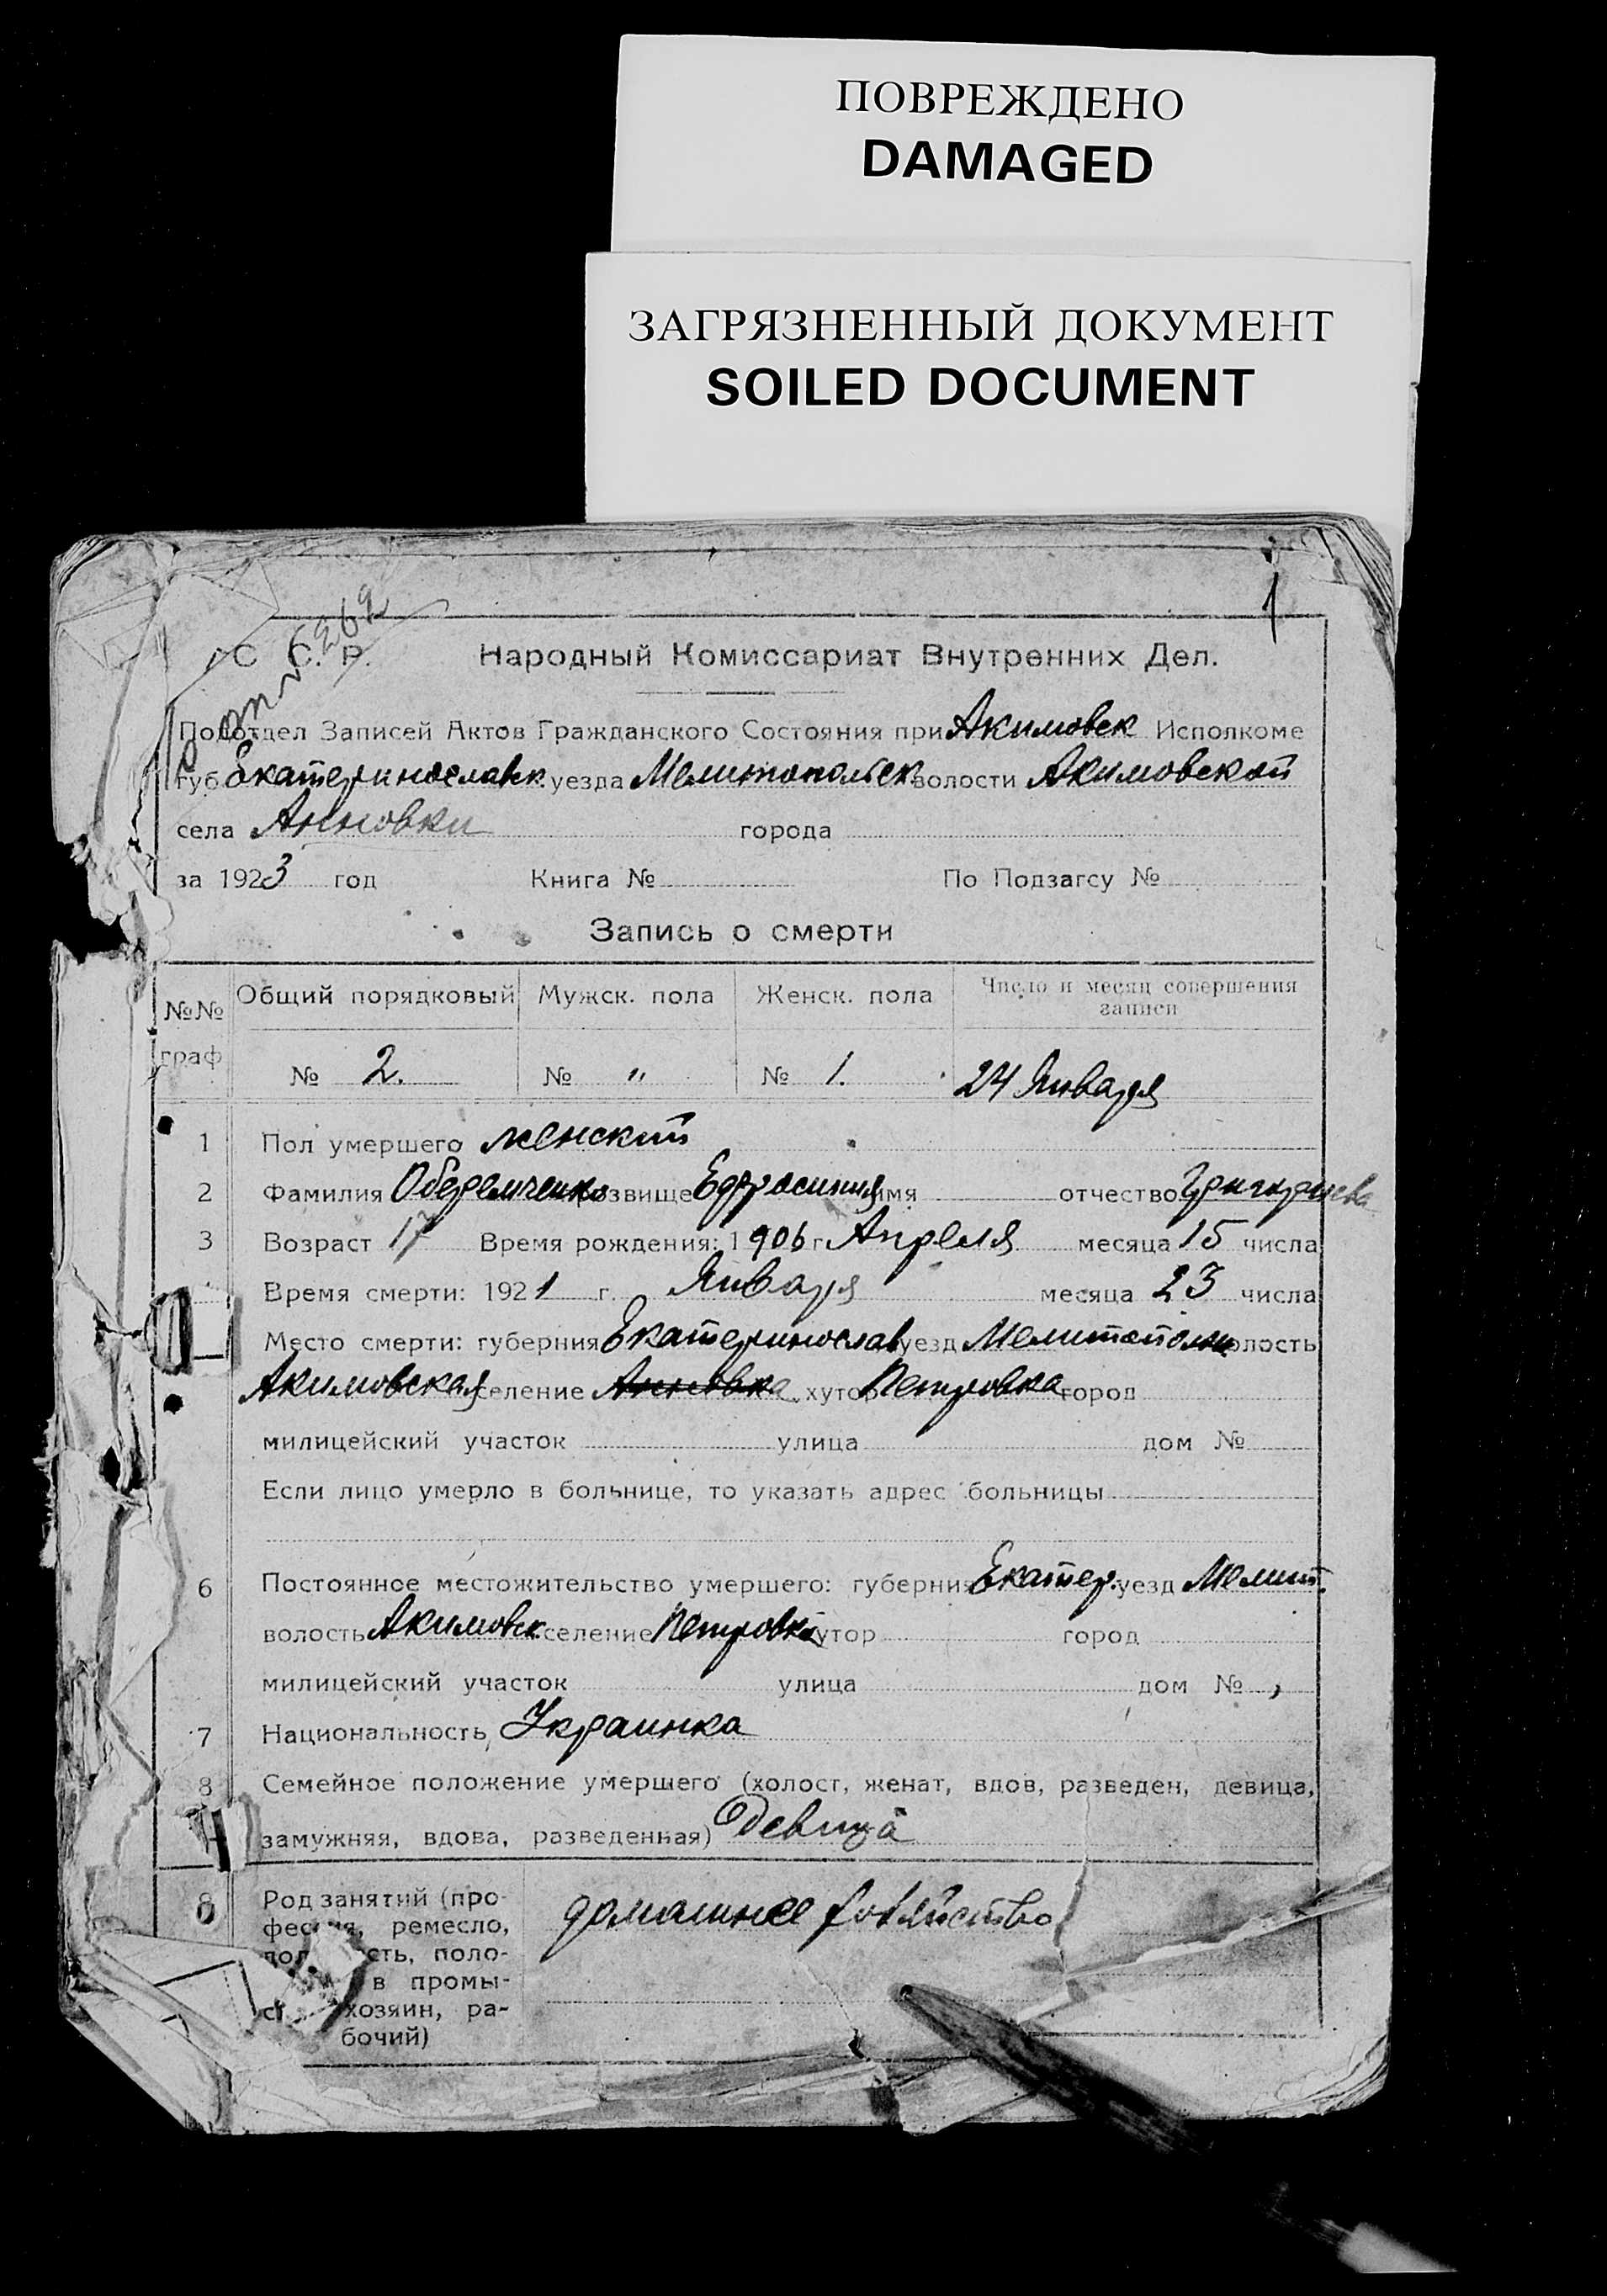 ПОВРЕЖДЕНО
DAMAGED
ЗАГРЯЗНЕННЫЙ ДОКУМЕНТ
SOILED DOCUMENT
1
С. С. Р. Народный Комиссариат Внутренних Дел.
Подотдел Записей Актов Гражданского Состояния при Акимовск Исполкоме
губ Екатеринославск. уезда Мелитопольск волости Акимовской
села Анновки города
за 1923 год Книга № По Подзагсу №
Запись о смерти
№№ граф Общий порядковый Мужск. пола Женск. пола Число и месяц совершения записи
№ 2. № " № 1. 24 Января
1 Пол умершего женский
2 Фамилия Оберемченко прозвище Ефросиния имя отчество Григориева
3 Возраст 17 Время рождения: 1906 г. Апреля месяца 15 числа
Время смерти: 1921 г. Января месяца 23 числа
Место смерти: губерния Екатеринослав уезд Мелитополь волость
Акимовская селение Анновка хутор Петровка город
милицейский участок улица дом №
Если лицо умерло в больнице, то указать адрес больницы
6 Постоянное местожительство умершего: губерния Екатер. уезд Мелит.
волость Акимовск. селение Петровка хутор город
милицейский участок улица дом №
7 Национальность Украинка
8 Семейное положение умершего (холост, женат, вдов, разведен, девица,
замужняя, вдова, разведенная) Девица
Род занятий (про- домашнее хозяйство
фессия, ремесло,
должность, поло-
в промы-
хозяин, ра-
бочий)